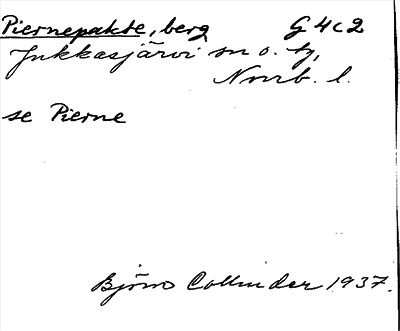 Piernepakte, berg G4c2
Jukkasjärvi sn o. tg,
Norrb. l.
se Pierne
Björn Collinder 1937.